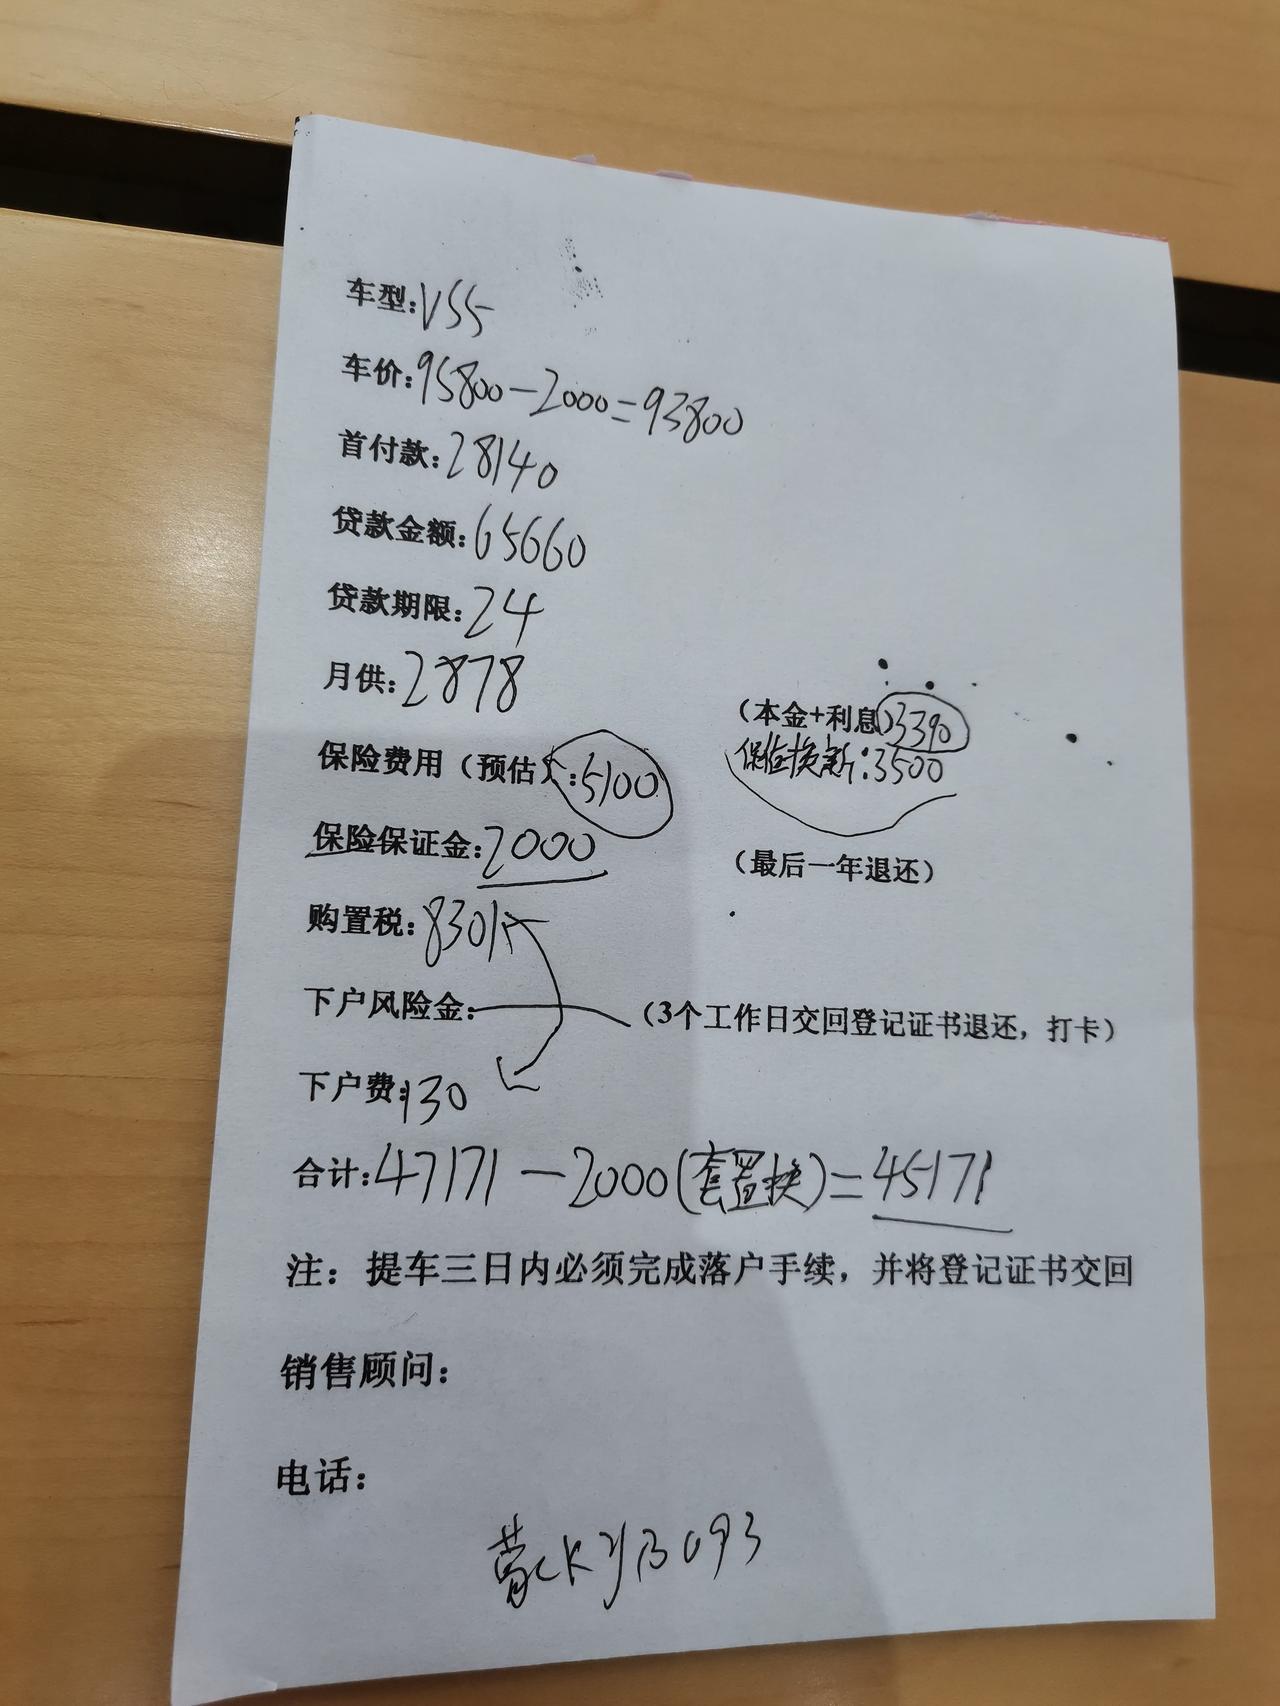 车型:V55
车价:95800-2000=93800
首付款:28140
贷款金额:65660
贷款期限:24
月供:2878
(本金+利息)3390
保险费用(预估):5100
保险换新:3500
保险保证金:2000
(最后一年退还)
购置税:8301
下户风险金:
(3个工作日交回登记证书退还,打卡)
下户费:130
合计:47171-2000(套置换)=45171
注:提车三日内必须完成落户手续,并将登记证书交回
销售顾问:
电话:
蒙CKYB093